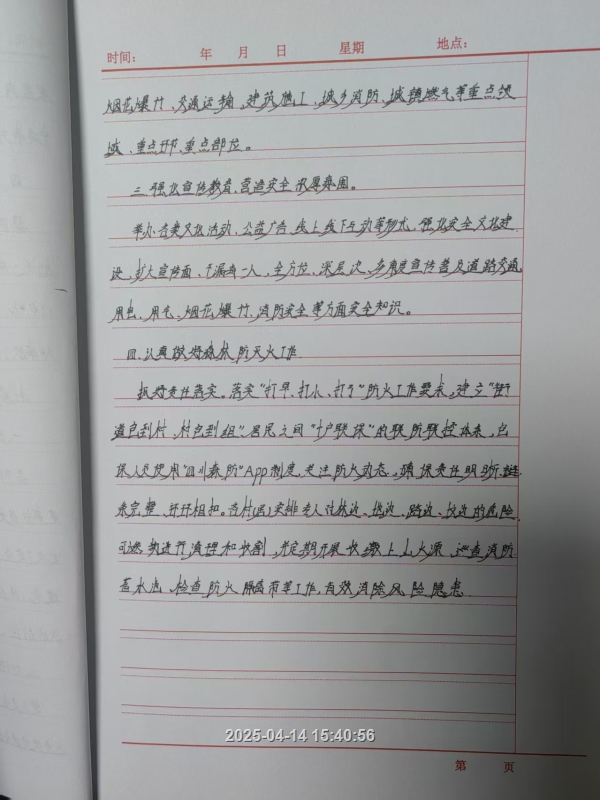 时间： 年 月 日 星期 地点：
烟花爆竹、交通运输、建筑施工、城乡消防、城镇燃气等重点领
域、重点环节、重点部位。
三、强化宣传教育，营造安全浓厚氛围。
举办各类文化活动、公益广告、线上线下互动等形式，强化安全文化建
设，扩大宣传面，不漏一人，全方位、深层次、多角度宣传普及道路交通、
用电、用气、烟花爆竹、消防安全等方面安全知识。
四、认真做好森林防灭火工作
抓好责任落实。落实"打早、打小、打了"防火工作要求，建立"街
道包到村，村包到组"居民之间"十户联保"的联防联控体系，包
保人员使用"四川森防"App制度，关注防火动态，确保责任明晰、链
条完整、环环相扣。各村（居）安排专人对林边、地边、路边、坟边的危险
可燃物进行清理和收割，并定期开展收缴上山火源，巡查消防
蓄水池，检查防火隔离带等工作，有效消除风险隐患
2025-04-14 15:40:56
第 页